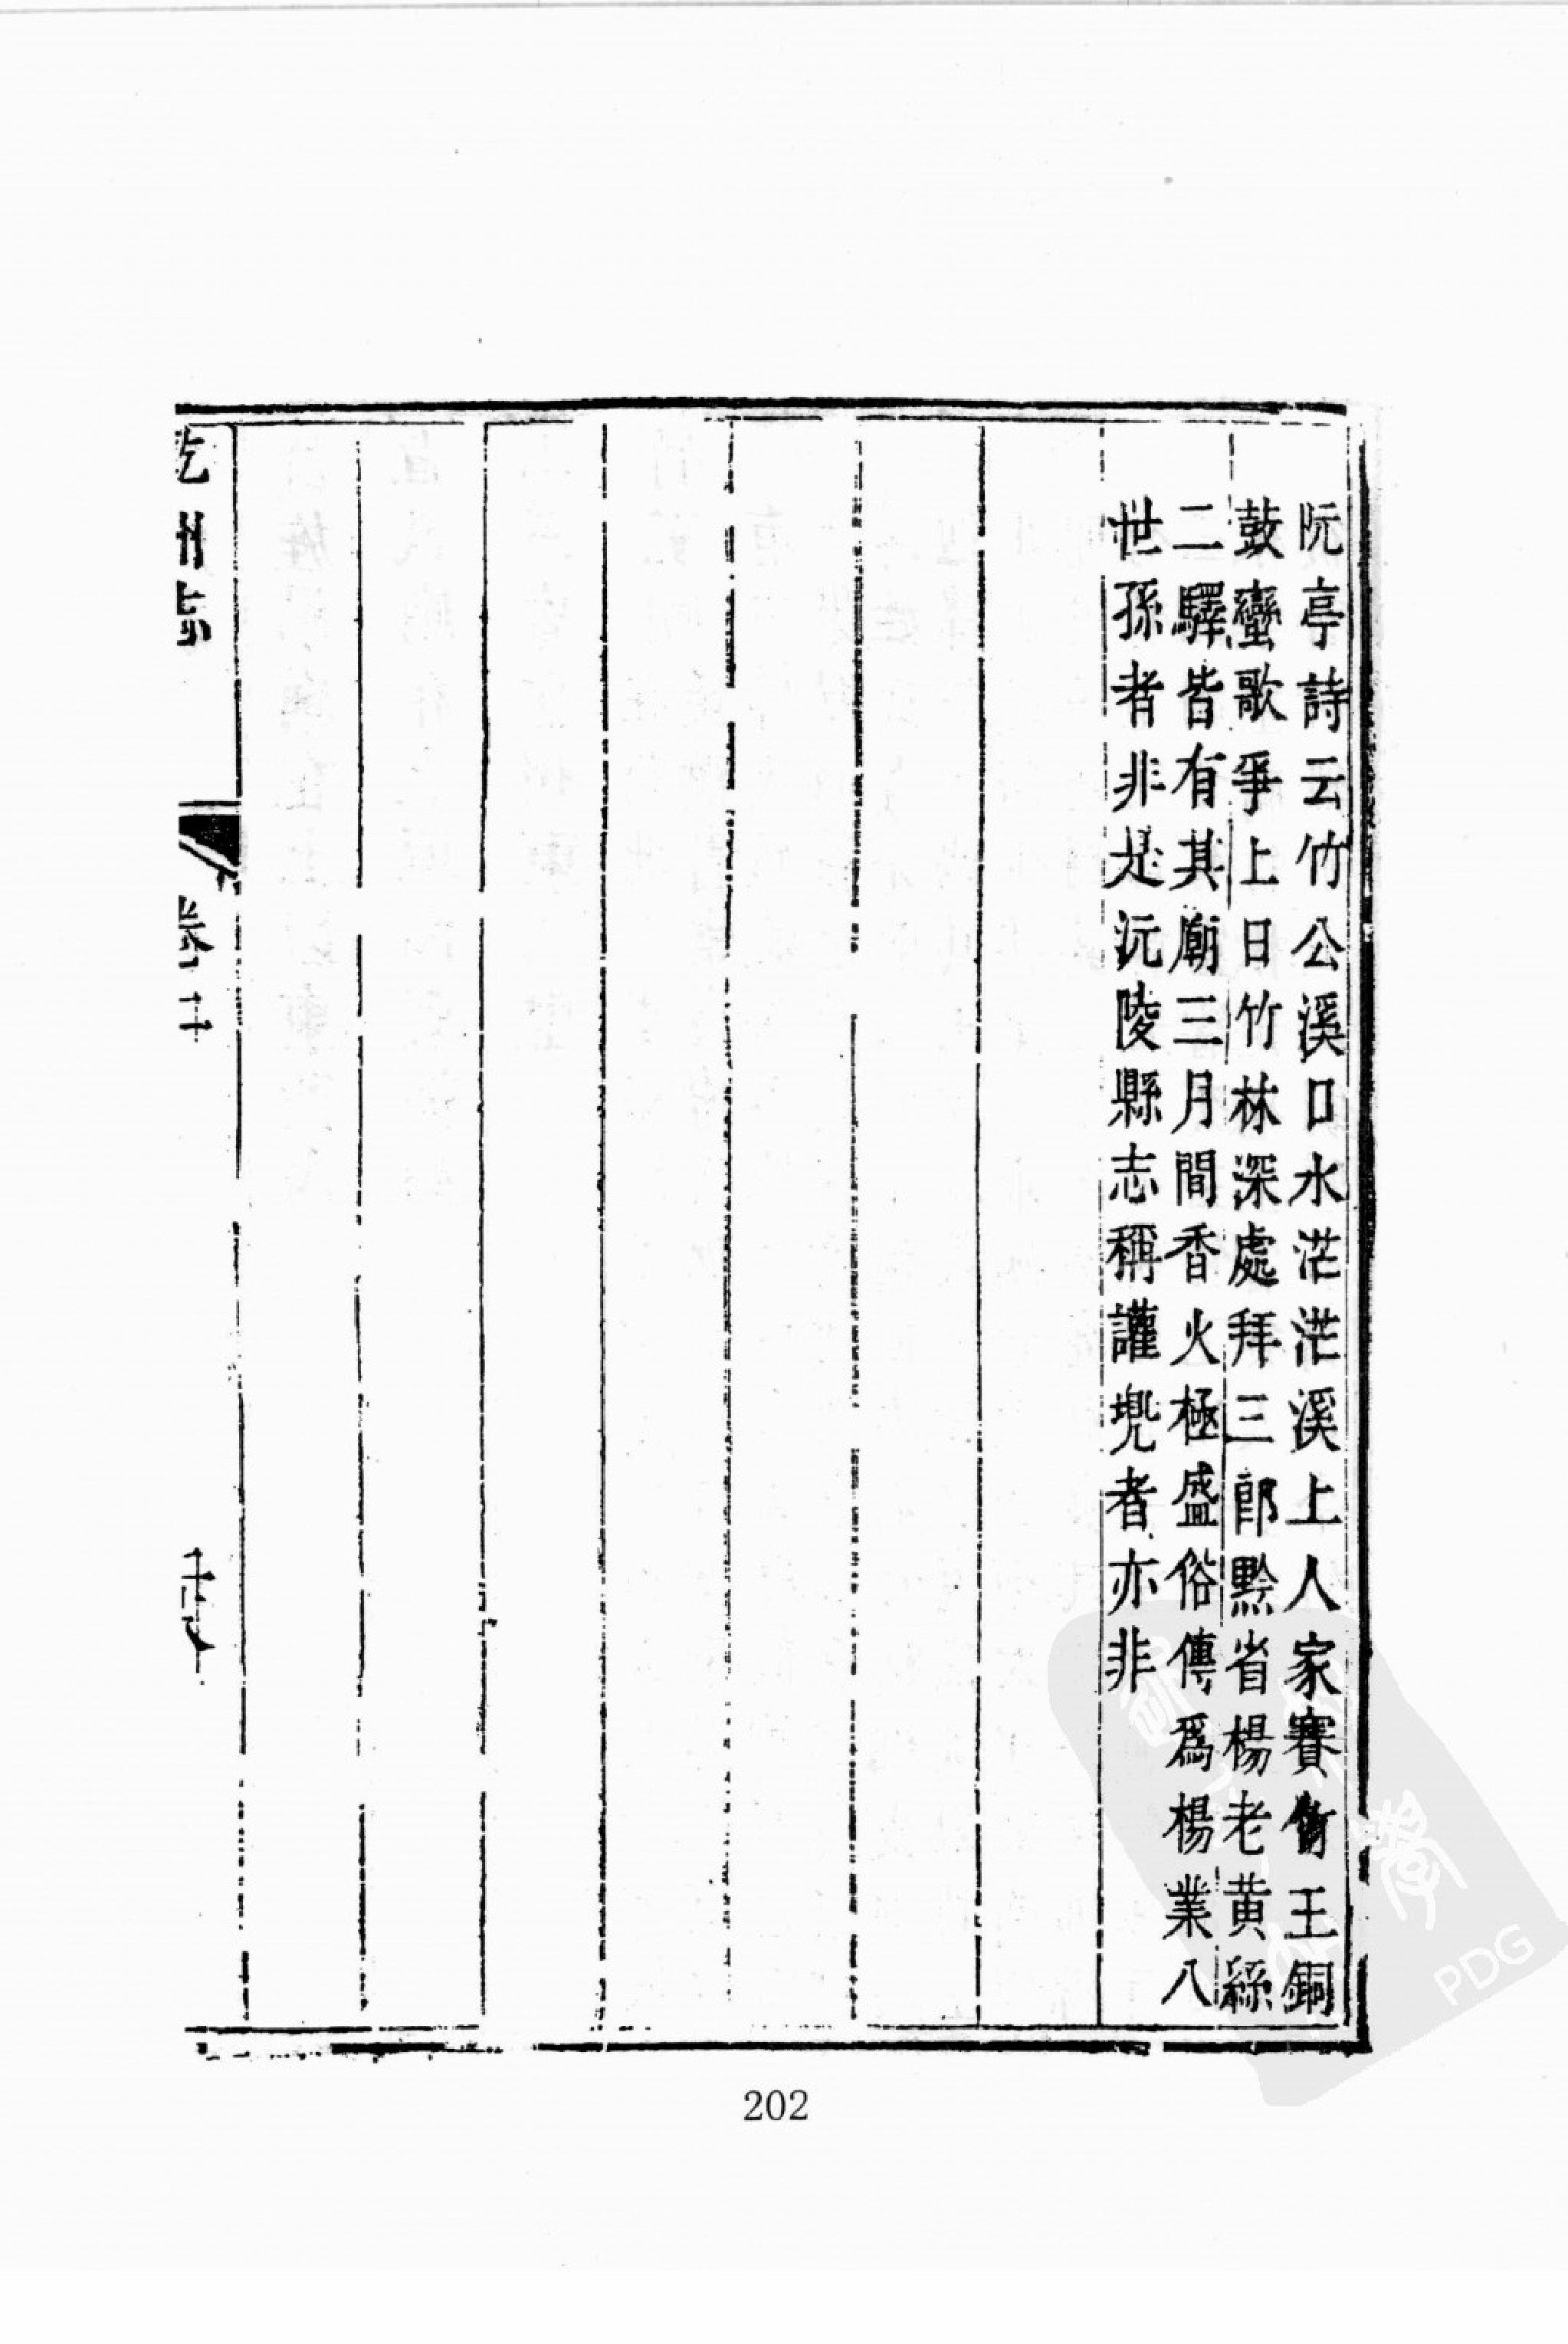 阮亭詩云竹公溪口水茫茫溪上人家賽竹王銅
鼓蠻歌爭上日竹林深處拜三郎黔省楊老黃絲
二驛皆有其廟三月間香火極盛俗傳爲楊業八
世孫者非是沅陵縣志稱讙兠者亦非
乾州志
卷二
202
PDG